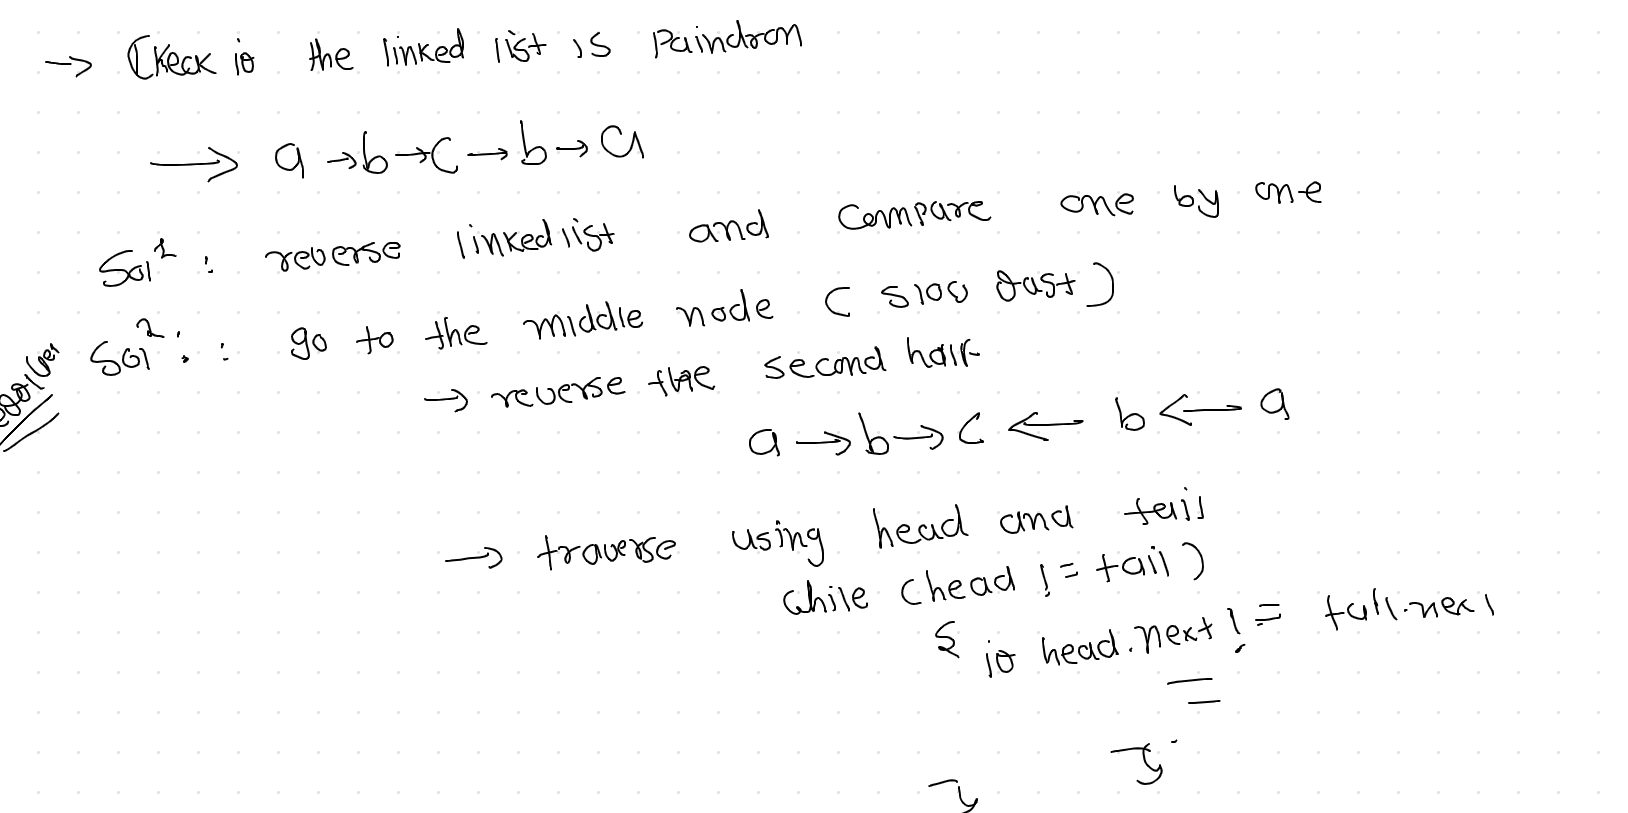 → Check if the linked list is Paindron
→ a → b → c → b → a
Sol 1 : reverse linkedlist and Compare one by one
Sol 2 : : go to the middle node ( slow fast )
→ reverse the second half
a → b → c ← b ← a
→ traverse using head and tail
while (head != tail )
{ if head.next != tail.next
=
}
}